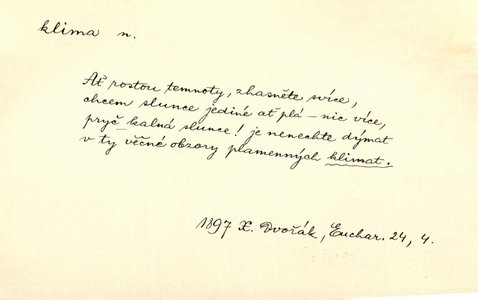 klima n.
Ať rostou temnoty, zhasněte svíce,
chcem slunce jediné ať plá – nic více,
pryč kalná slunce! je nenechte dýmat
v ty věčné obzory plamenných klimat.
1897 X. Dvořák, Euchar. 24, 4.